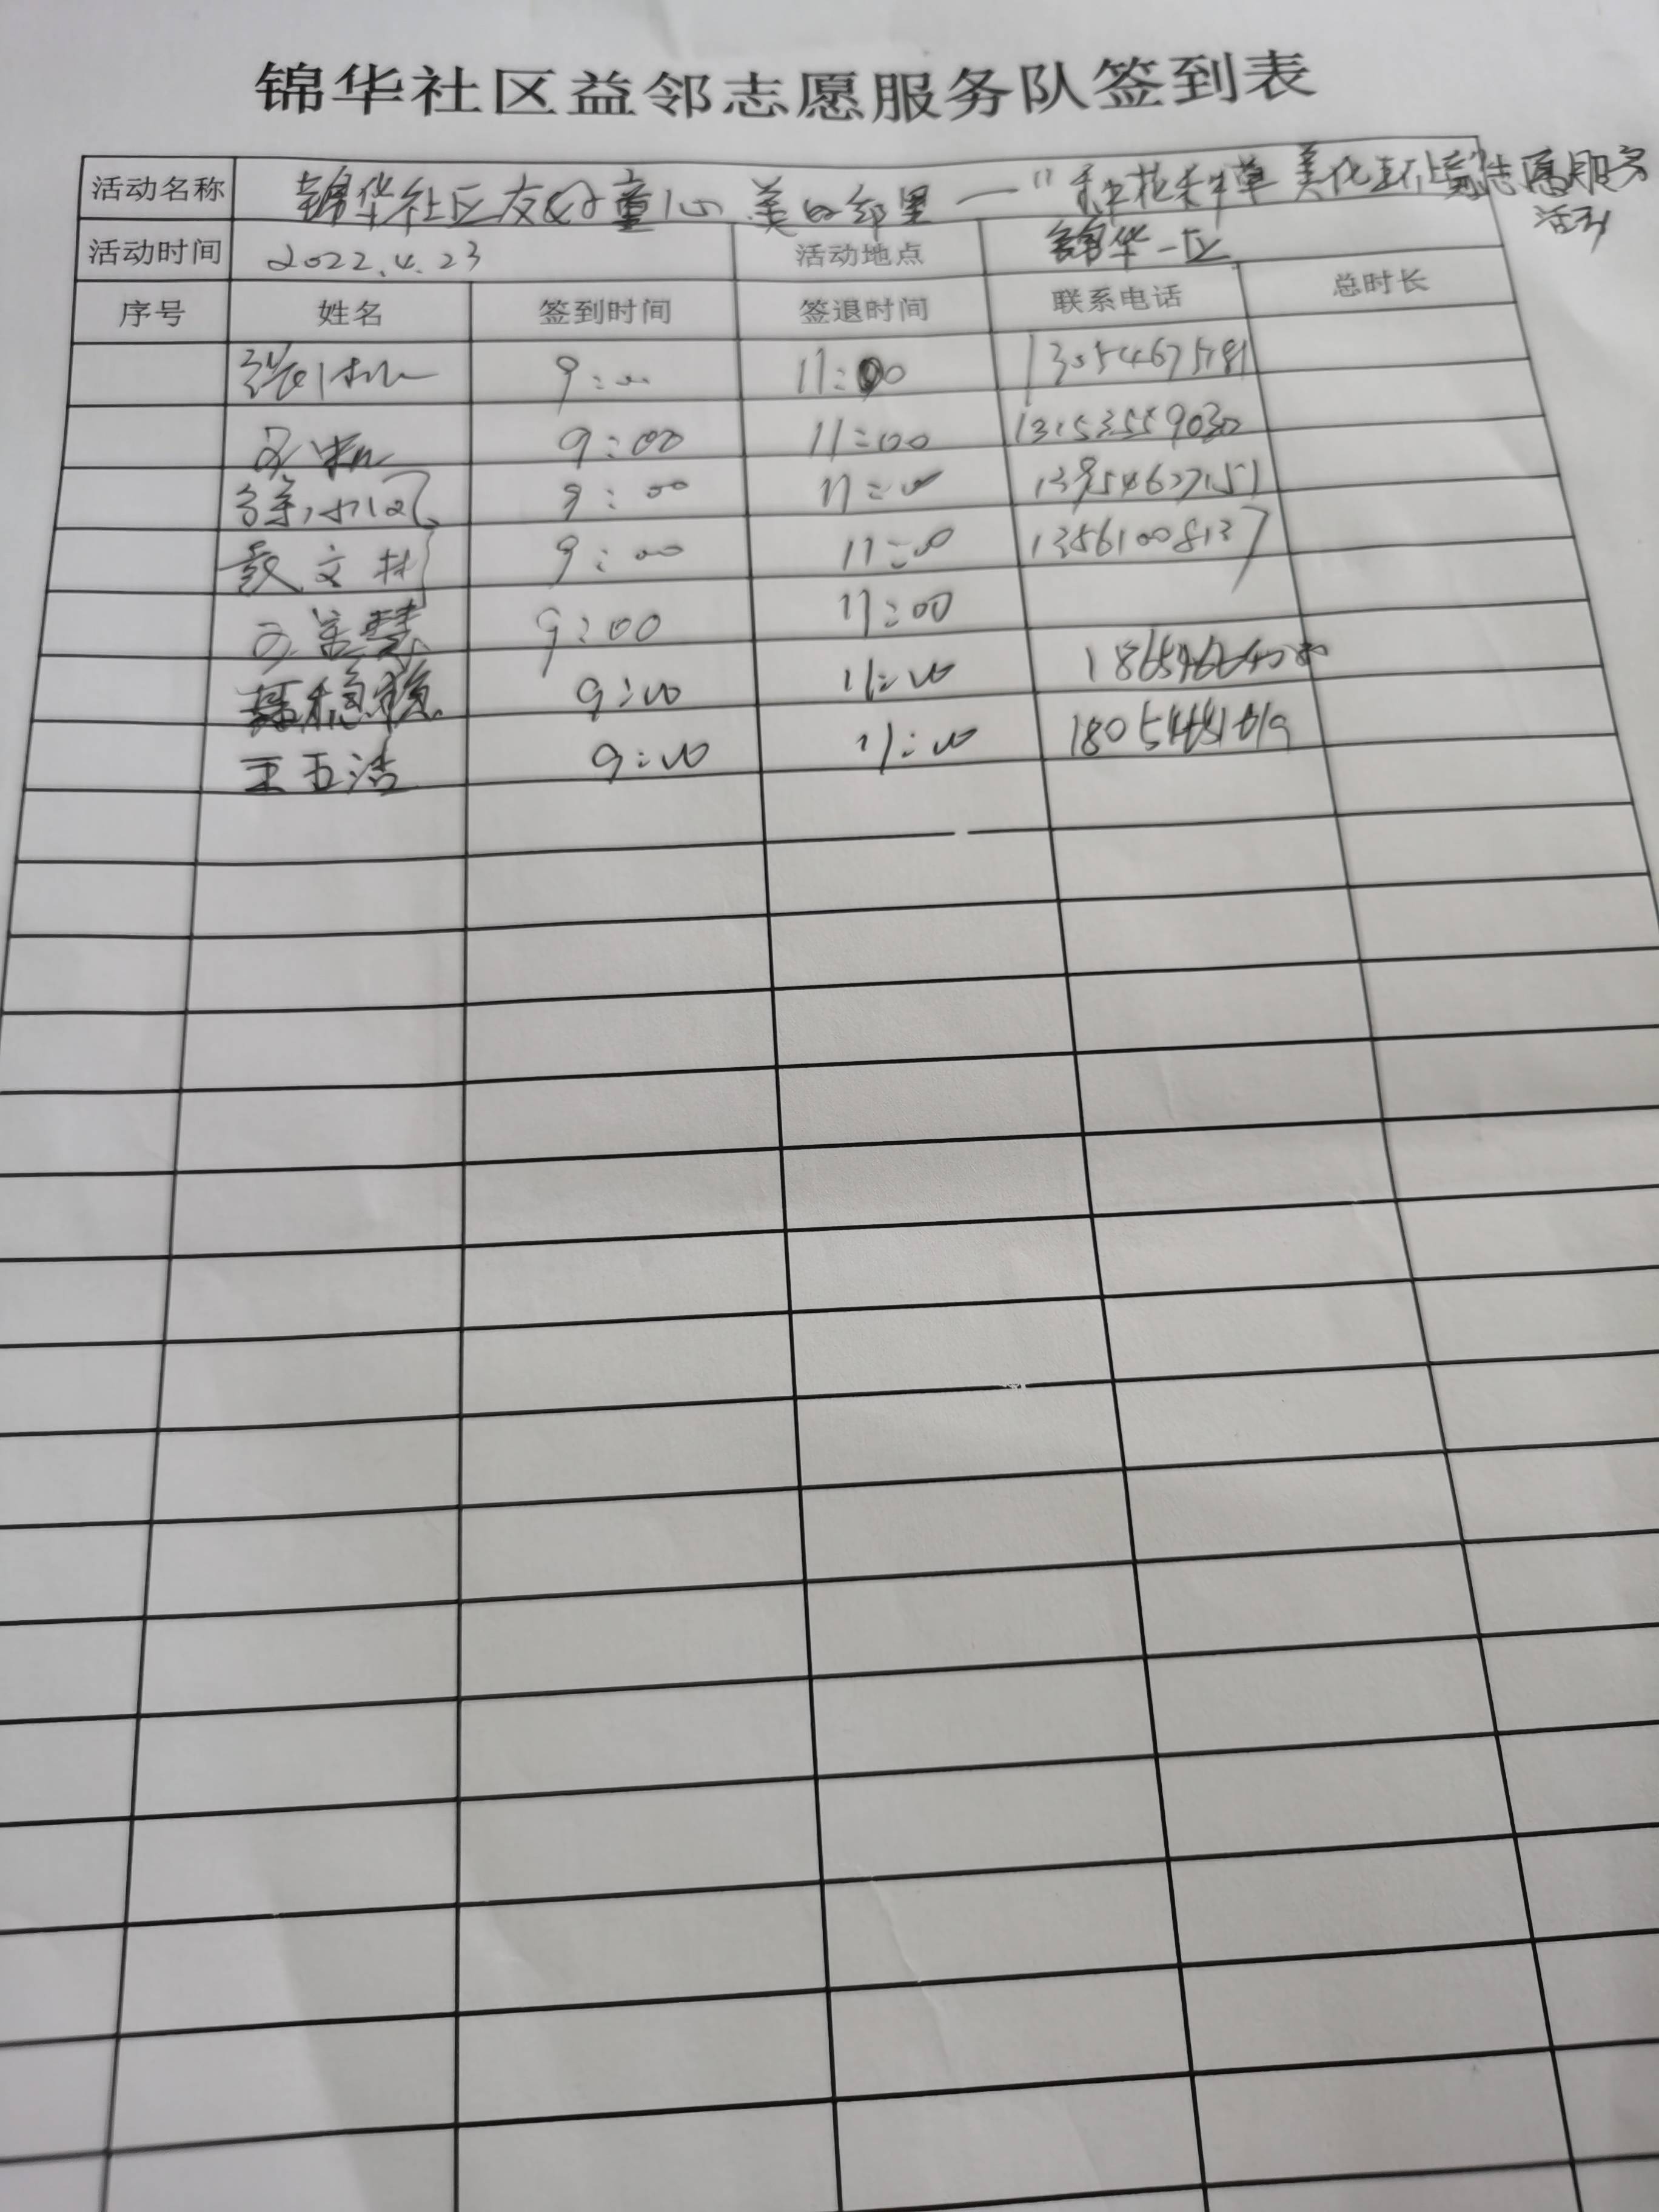 锦华社区益邻志愿服务队签到表
活动名称 锦华社区友好童心 美的邻里一"种花种草 美化环境志愿服务
活动
活动时间 2022.4.23 活动地点 锦华一区
序号 姓名 签到时间 签退时间 联系电话 总时长
9:00 11:00 13054675781
9:00 11:00 13153559030
9:00 11:00 13954627151
文 9:00 11:00 13561008137
9:00 11:00
稳 9:00 11:00
王玉洁 9:00 11:00